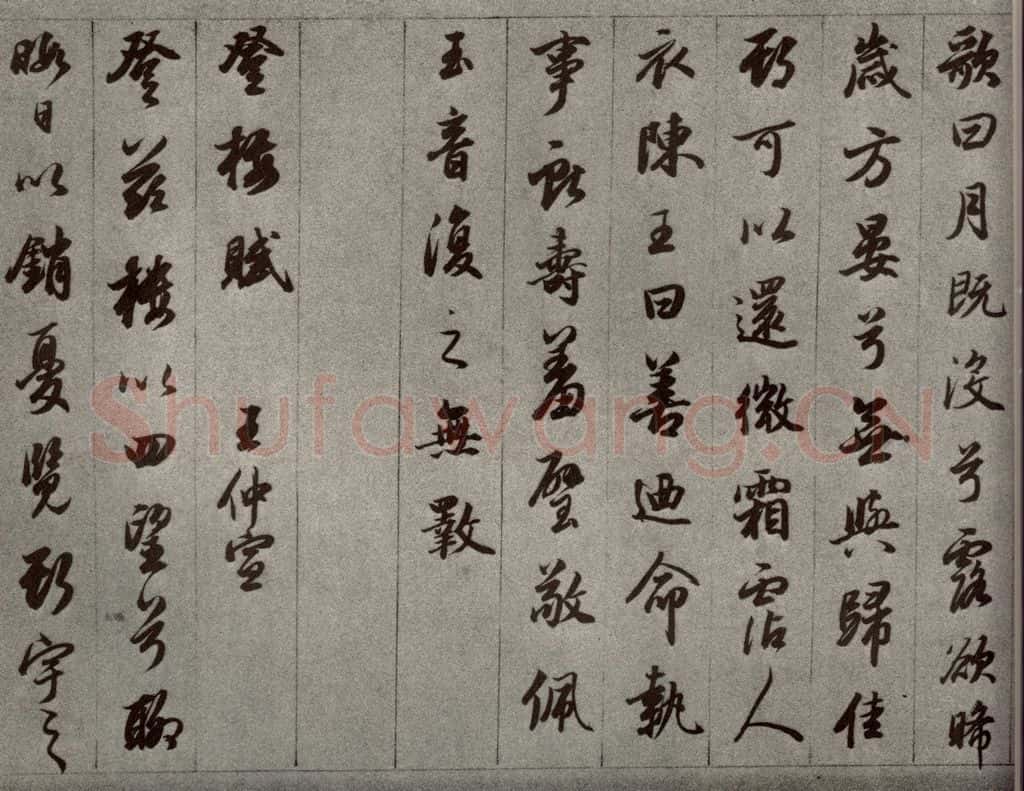 歌曰月既沒兮露欲晞
歲方晏兮無與歸佳
期可以還微霜霑人
衣陳王曰善迺命執
事獻壽羞璧敬佩
玉音復之無斁
登樓賦 王仲宣
登茲樓以四望兮聊
暇日以銷憂覽斯宇之
Shufawang.CN